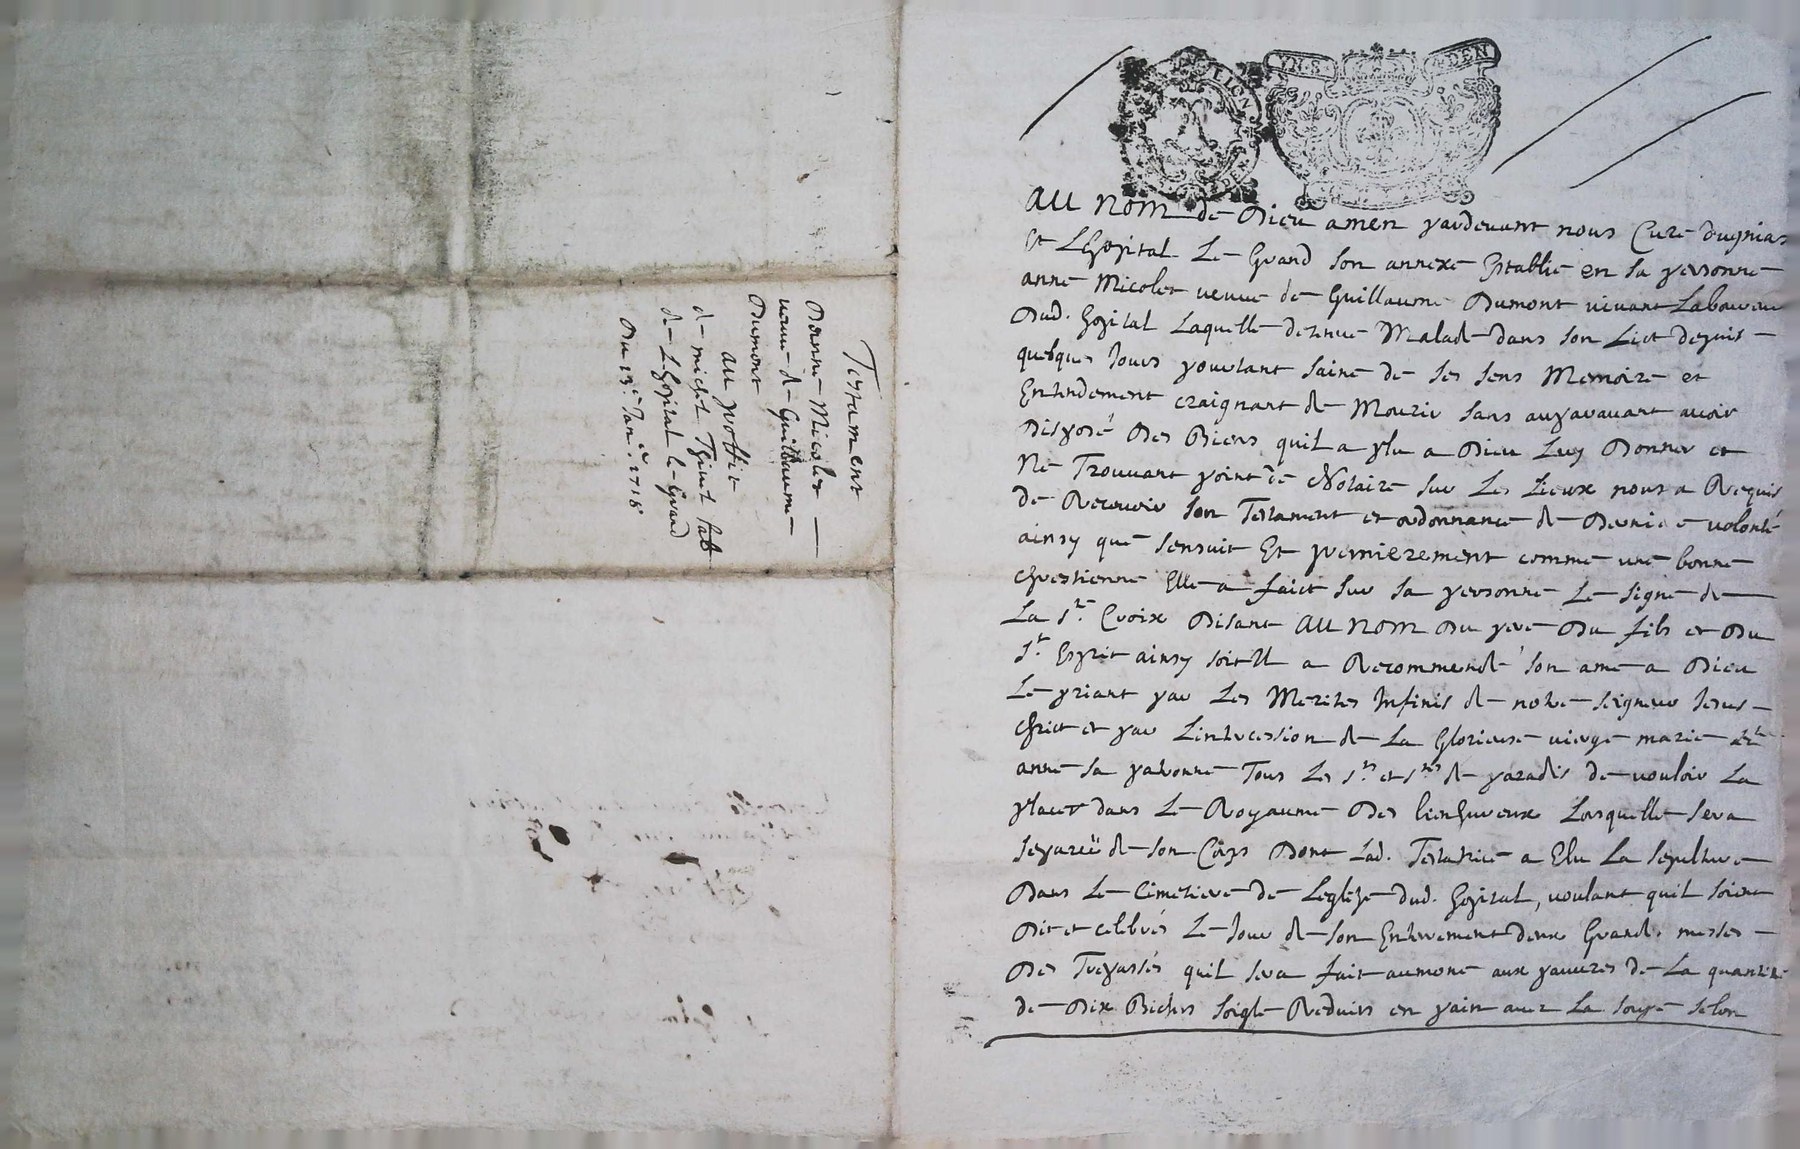 Testament
Danne Micolet
veuve de Guillaume
Dumont
au proffit
de michel Thinet
de Lhopital le Grand
Du 13e Janer 1718
LION
DEN
VN S
DEN
AU nom de Dieu amen pardevant nous Curé dugnias
Et Lhopital Le Grand son annexe Establie en sa personne
anne Micolet veuve de Guillaume Dumont vivant Laboureur
Dud. hopital Laquelle detenue Malade dans son Lict depuis
quelques Jours pourtant saine de ses sens Memoire et
Entendement craignant de Mourir sans auparavant avoir
Disposé Des Biens quil a plu a Dieu Luy Donner et
Ne Trouvant point de Notaire sur Les Lieux nous a Requis
de Recevoir son Testament et ordonnance de Derniere volonté
ainsy que sensuit Et premierement comme une bonne
chrestienne Elle a faict sur sa personne Le signe de
La Ste Croix Disant AU NOM Du pere Du fils et Du
St Esprit ainsy soit Il a Recommendé son ame a Dieu
Le priant par Les Merites Infinis de notre seigneur Jesus
christ et par Lintercession de La Glorieuse vierge marie
anne sa patronne Tous Les Sts et Stes de paradis de vouloir La
placer dans Le Royaume Des bienhureux Lorsquelle sera
separeë de son Corps Dont Lad. Testatrice a Elu La sepulture
Dans Le Cimetiere de Leglize dud. hopital, voulant quil soient
Dit et celebrés Le Jour de son Enterrement deux Grandes messes
Des Trepassés quil sera fait aumone aux pauvres de La quantité
de Dix Bichets soigle Reduits en pain avec La soupe selon